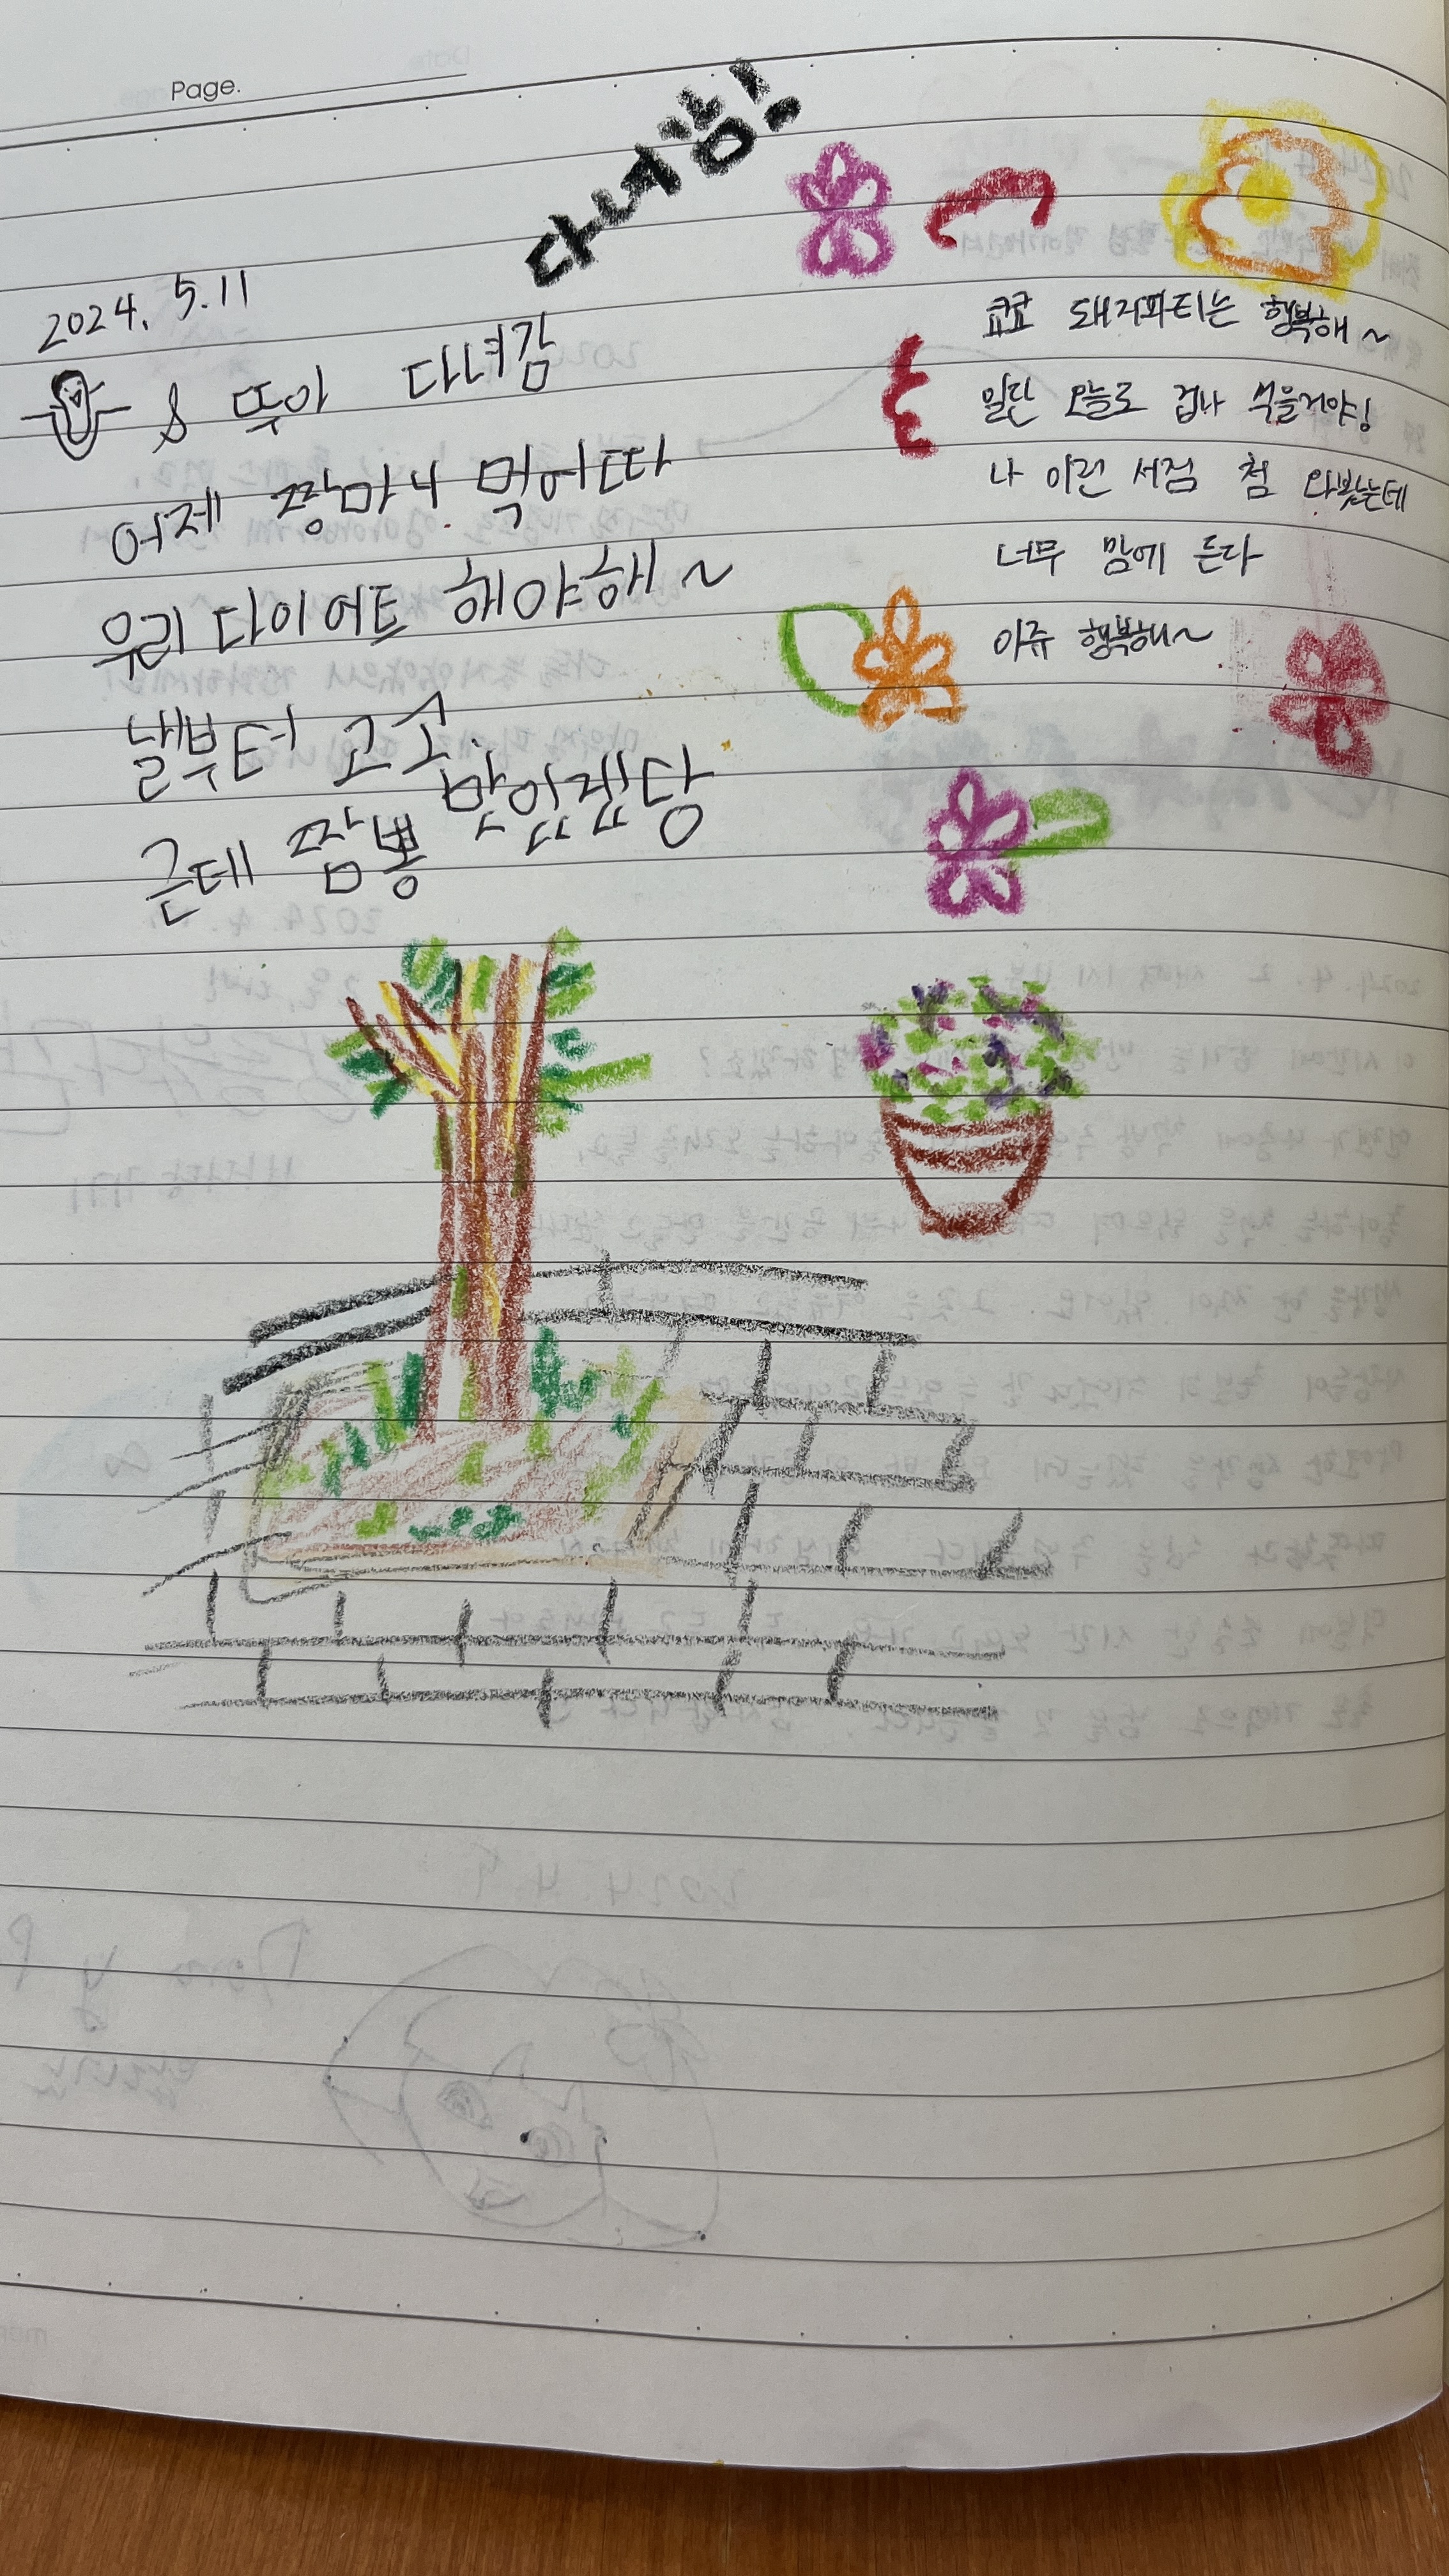 Page.
다녀감!
2024. 5.11
& 뚜아 다녀감
어제 짱마니 먹어따
우리 다이어트 해야해~
낼부터 고고.
근데 짬뽕 맛있겠당
쿄쿄 돼지파티는 행복해~
일단 오늘도 겁나 먹을거야!
나 이런 서점 첨 와봤는데
너무 맘에 든다
아쥬 행복해~